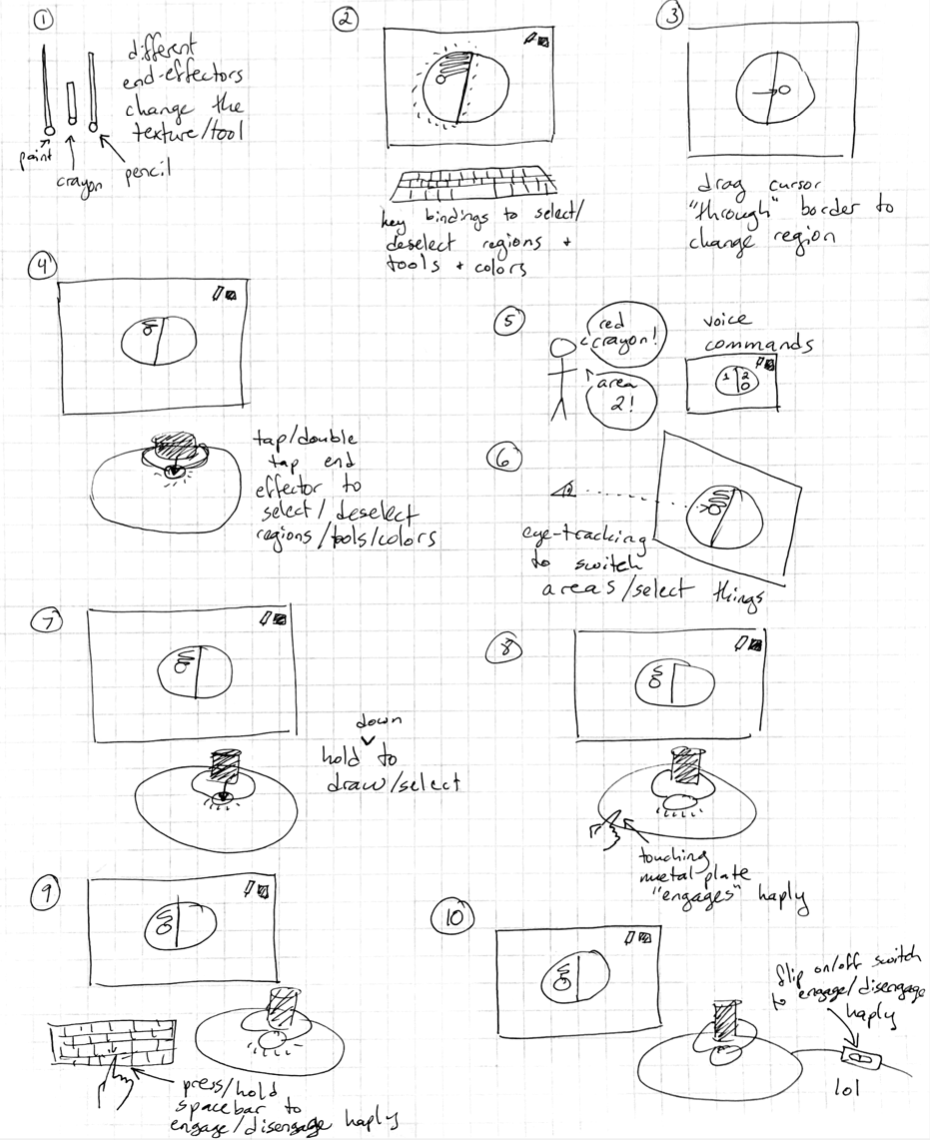 1
different
end-effectors
change the
texture/tool
paint
crayon
pencil
2
key bindings to select/
deselect regions +
tools + colors
3
drag cursor
"through" border to
change region
4
tap/double
tap end
effector to
select/deselect
regions/tools/colors
5
red
crayon!
area
2!
voice
commands
1 2
6
eye-tracking
to switch
areas/select things
7
down
hold to
draw/select
8
touching
metal plate
"engages" haply
9
press/hold
spacebar to
engage/disengage haply
10
flip on/off switch
to engage/disengage
haply
lol